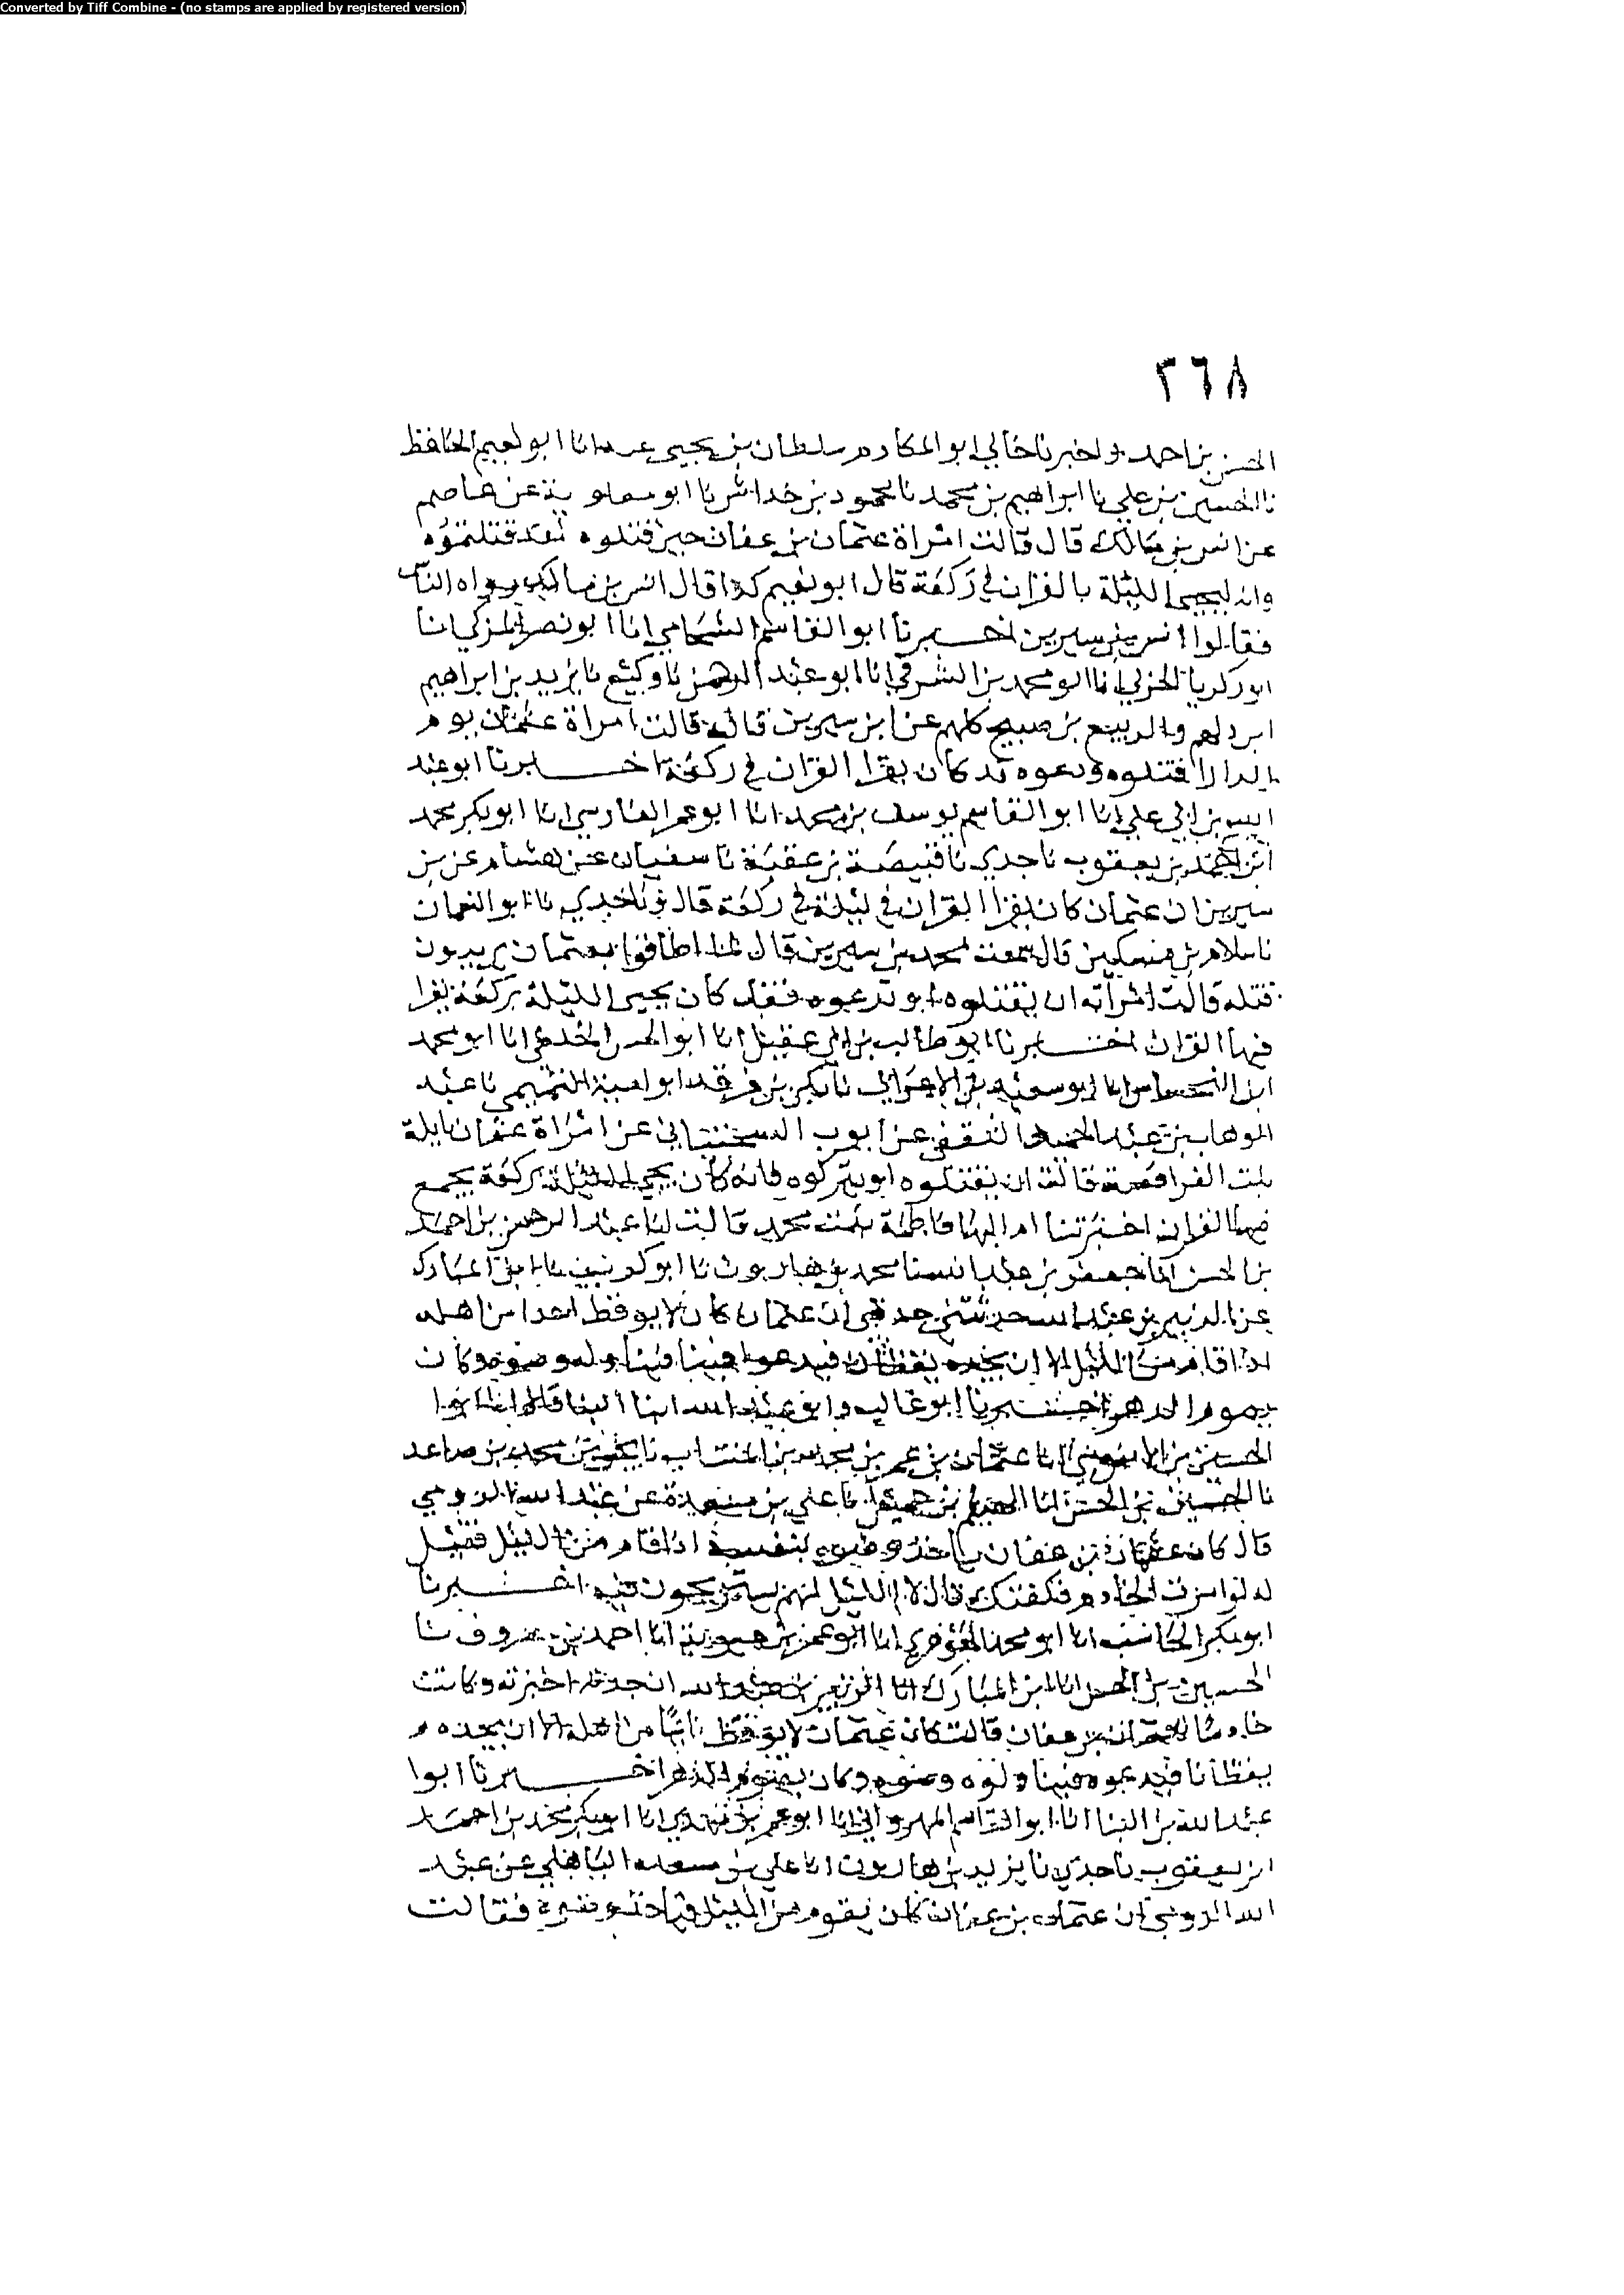 Converted by Tiff Combine - (no stamps are applied by registered version)
٢٦٨
الحسن بن احمد واخبرنا خالي ابو المكارم سلطان بن يحيى انا ابو نعيم الحافظ
نا الحسين بن علي نا ابراهيم بن محمد نا محمود بن خداش نا ابو معاوية عن عاصم
عن انس بن مالك قال قالت امراة عثمان بن عفان حين قتلوه لقد قتلتموه
وانه ليحيي الليلة بالقران في ركعة قال ابو نعيم كذا قال انس بن مالك ورواه الناس
فقالوا انس بن سيرين اخبرنا ابو القاسم الشحامي انا ابو نصر المزكي انا
ابو زكريا الحربي انا ابو محمد بن الشرقي انا ابو عبد الرحمن نا وكيع نا يزيد بن ابراهيم
والربيع بن صبيح كلهم عن ابن سيرين قال قالت امراة عثمان يوم
الدار اقتلوه ودعوه قد كان يقرا القران في ركعة اخبرنا ابو عبد
بن ابي علي انا ابو القاسم يوسف بن محمد انا ابو عمر الفارسي انا ابو بكر محمد
ابن احمد بن يعقوب نا جدي نا قبيصة بن عقبة نا سفيان عن هشام عن بن
سيرين ان عثمان كان يقرا القران في ليلة في ركعة قال ونا جدي نا ابو النعمان
نا سلام بن مسكين قال سمعت محمد بن سيرين قال لما اطافوا بعثمان يريدون
قتله قالت امراته ان تقتلوه او تدعوه فقد كان يحيي الليلة بركعة يقرا
فيها القران اخبرنا ابو طالب بن ابي عقيل انا ابو الحسن الخلعي انا ابو محمد
ابن النحاس انا ابو سعيد بن الاعرابي نا بكر بن فرقد ابو امية التميمي نا عبد
الوهاب بن عبد المجيد الثقفي عن ايوب السختياني عن امراة عثمان نايلة
بنت الفرافصة قالت ان تقتلوه او تتركوه فانه كان يحيي الليلة بركعة يجمع
فيها القران اخبرتنا ام البها فاطمة بنت محمد قالت انا عبد الرحمن بن احمد
بن الحسن انا جعفر بن عبد الله نا محمد بن هارون نا ابو كريب نا ابن المبارك
عن الزبير بن عبد الله حدثتني جدتي ان عثمان كان لا يوقظ احدا من اهله
اذا قام من الليل الا ان يجده يقظان فيدعوه فيناوله وضوه وكان
يصوم الدهر اخبرنا ابو غالب وابو عبد الله ابنا البنا قالا انا ابو
الحسين بن الابنوسي انا عثمان بن عمر بن محمد بن المنتاب نا يحيى بن محمد بن صاعد
نا الحسين بن الحسن انا الهيثم بن جميل نا علي بن مسعدة عن عبد الله الرومي
قال كان عثمان بن عفان ياخذ وضوه لنفسه اذا قام من الليل فقيل
له لو امرت الخادم فكفتك قال لا الليل لهم يستريحون فيه اخبرنا
ابو بكر الحاسب انا ابو محمد الجوهري انا ابو عمر بن حيوية انا احمد بن معروف نا
الحسين بن الحسن انا ابن المبارك انا الزبير بن عبد الله ان جدته اخبرته وكانت
خادما لعثمان بن عفان قالت كان عثمان لا يوقظ نائما من اهله الا ان يجده
يقظانا فيدعوه فيناوله وضوه وكان يصوم الدهر اخبرنا ابوا
عبد الله بن البنا انا ابو القاسم المهرواني انا ابو عمر بن مهدي انا ابو بكر محمد بن احمد
ابن يعقوب نا جدي نا يزيد بن هارون انا علي بن مسعدة الباهلي عن عبد
الله الرومي ان عثمان بن عفان كان يقوم من الليل فياخذ وضوه فقالت